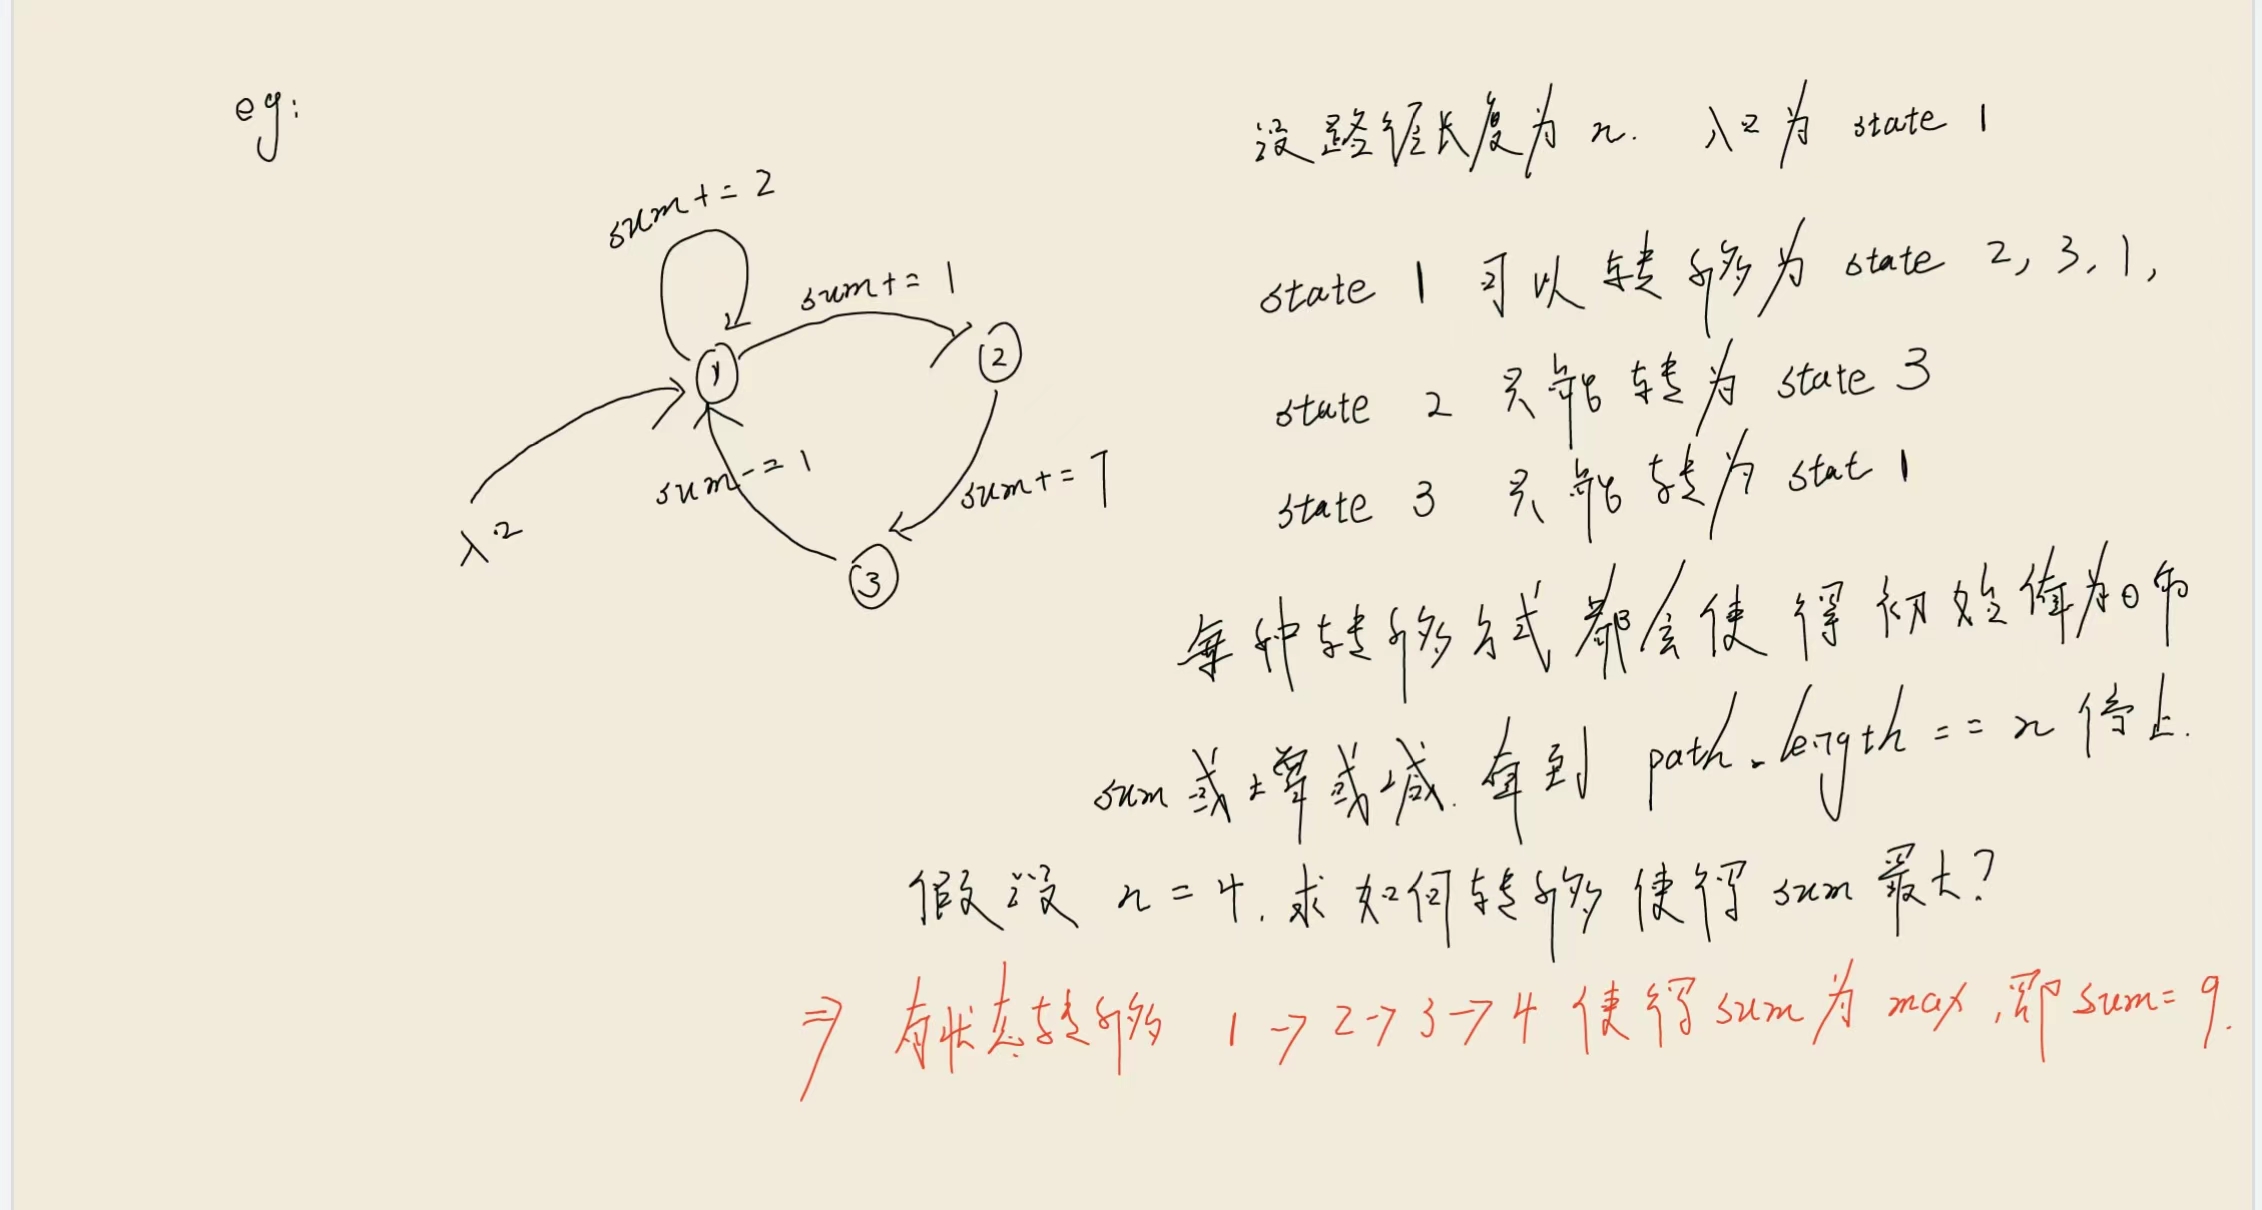 eg:
sum+=2
sum+=1
1
2
sum-=1
sum+=7
入口
3
设路径长度为 n. 入口为 state 1
state 1 可以转移为 state 2, 3, 1,
state 2 只能转为 state 3
state 3 只能转为 stat 1
每种转移方式都会使得初始值为0的
sum 或增或减. 直到 path.length == n 停止.
假设 n = 4. 求如何转移使得 sum 最大?
⇒ 有状态转移 1→2→3→4 使得 sum 为 max, 即 sum = 9.